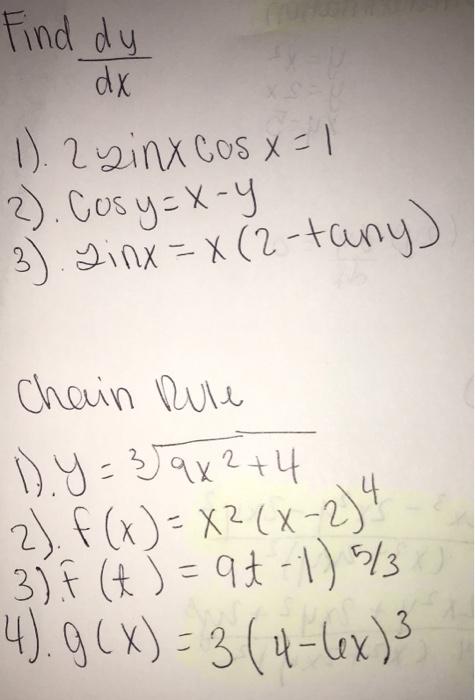 Find dy
dx
1). 2 sinx cos x = 1
2). Cos y = x - y
3). sinx = x (2 - tan y)
Chain Rule
1). y = ³√9x² + 4
2). f(x) = x² (x-2)⁴
3) f(t) = 9t - 1) ⁵/³
4). g(x) = 3(4-6x)³